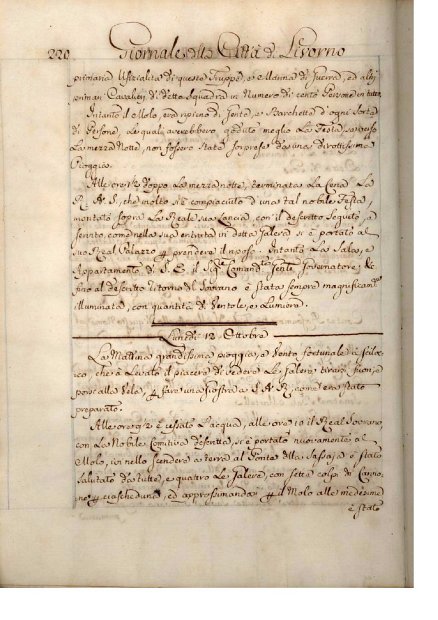 220. Giornale della Città di Livorno
primaria Uffizialità di queste Truppe, e Marina di Guerra, ed altri
primari Cavalieri di detta Squadra in Numero di cento Persone in tutto.
Intanto il Molo, era ripieno di Gente, e Barchette d'ogni sorta
di Persone, le quali averebbero goduto meglio la Festa, se verso
la mezza Notte, non fossero state sorprese da una dirottissima
Pioggia.
Alle ore 1/2 doppo la mezza notte, terminata la Cena, la
R. A. S., che molto si è compiaciuto d'una tal nobile Festa,
montato sopra la Reale sua Lancia, con il descritto seguito, e
servito come nella sua entrata in detta Galera si è portato al
suo Real Palazzo per prendere il riposo. Intanto la Sala, e
Appartamento di S. E. il Sig. Comand.te Gen.le Governatore,
fino al descritto ritorno del Sovrano è stata sempre magnificam.te
illuminata, con quantità di Ventole, e Lumiere.
Lunedì 12. Ottobre
La Mattina grandissima pioggia, e Vento fortunale di Scilocco,
che à levato il piacere di vedere le Galere tirarsi fuori, e
porsi alla Vela, per fare una Giostra a S. A. R., come era stato
preparato.
Alle ore 9 1/2 è cessato l'acqua, alle ore 10 il Real Sovrano,
con la Nobile Comitiva descritta, si è portato nuovamente al
Molo, ivi nello scendere a terra al Ponte della Sassaia è stato
salutato da tutte, e quattro le Galere, con sette colpi di Canno-
ne per ciascheduna, ed approssimandosi per il Molo alle medesime
è stato